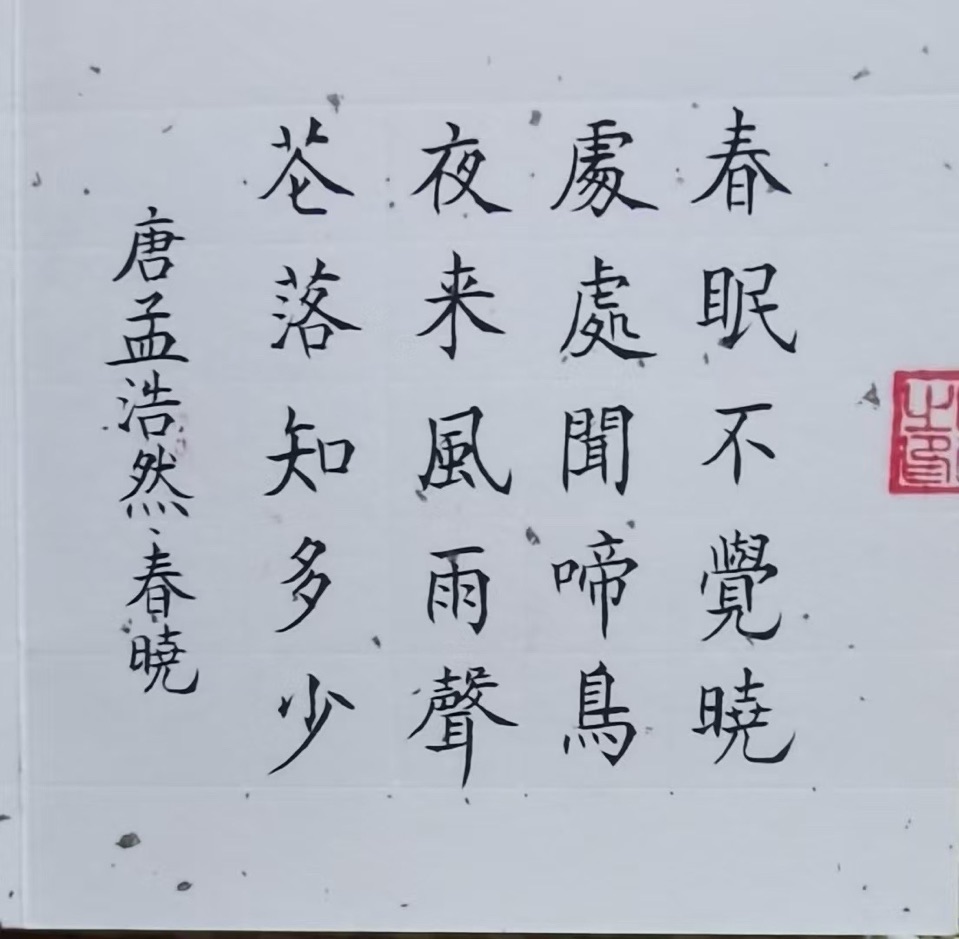 春眠不覺曉
處處聞啼鳥
夜来風雨聲
花落知多少
唐孟浩然春曉